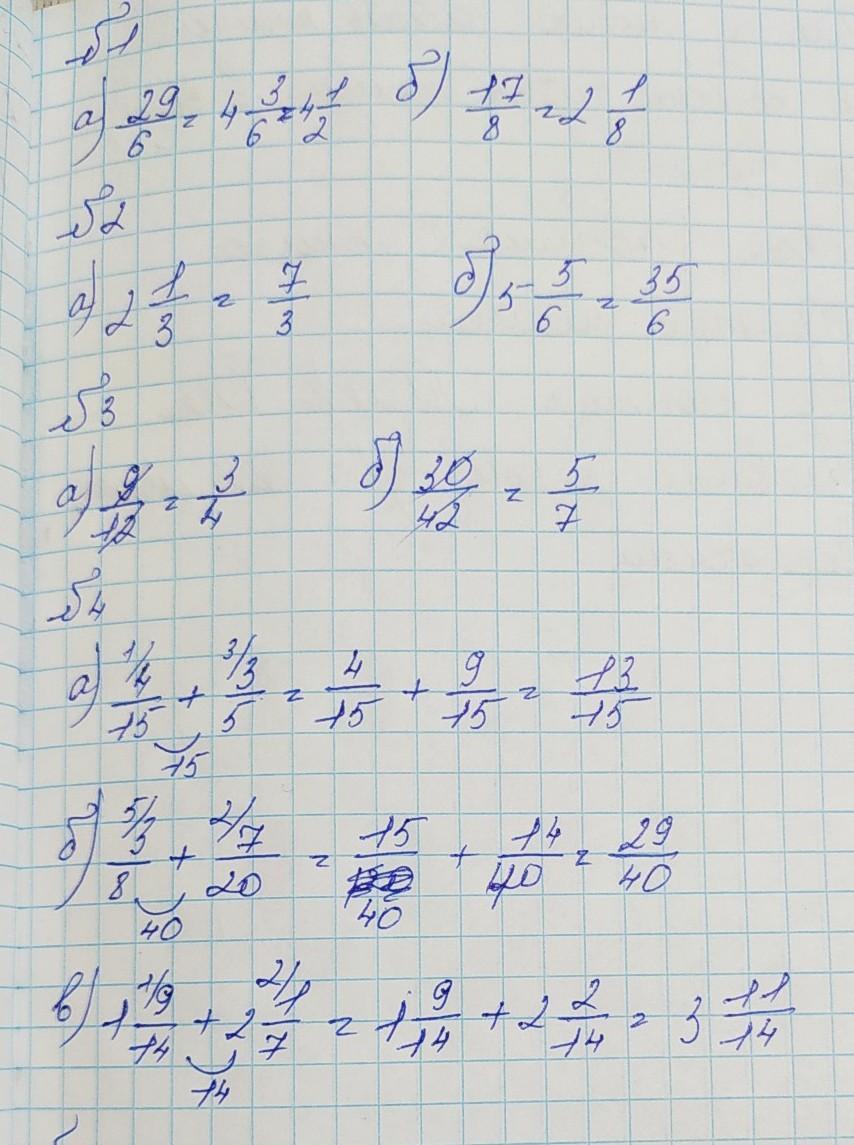 №1
а) 29/6 = 4 3/6 = 4 1/2 б) 17/8 = 2 1/8
№2
а) 2 1/3 = 7/3 б) 5 5/6 = 35/6
№3
а) 9/12 = 3/4 б) 30/42 = 5/7
№4
1/ 3/
а) 4/15 + 3/5 = 4/15 + 9/15 = 13/15
15
5/ 2/
б) 3/8 + 7/20 = 15/40 + 14/40 = 29/40
40
1/ 2/
в) 1 9/14 + 2 1/7 = 1 9/14 + 2 2/14 = 3 11/14
14